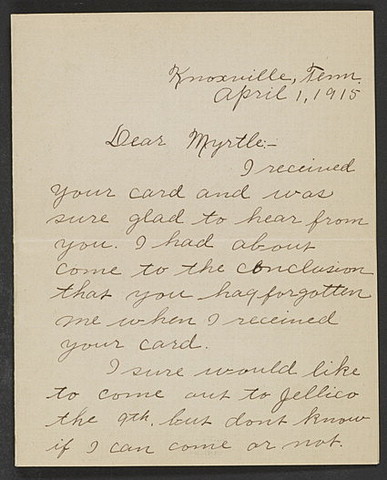 Knoxville, Tenn.
April 1, 1915
Dear Myrtle:-
I received
your card and was
sure glad to hear from
you. I had about
come to the conclusion
that you had forgotten
me when I received
your card.
I sure would like
to come out to Jellico
the 9th. but dont know
if I can come or not.